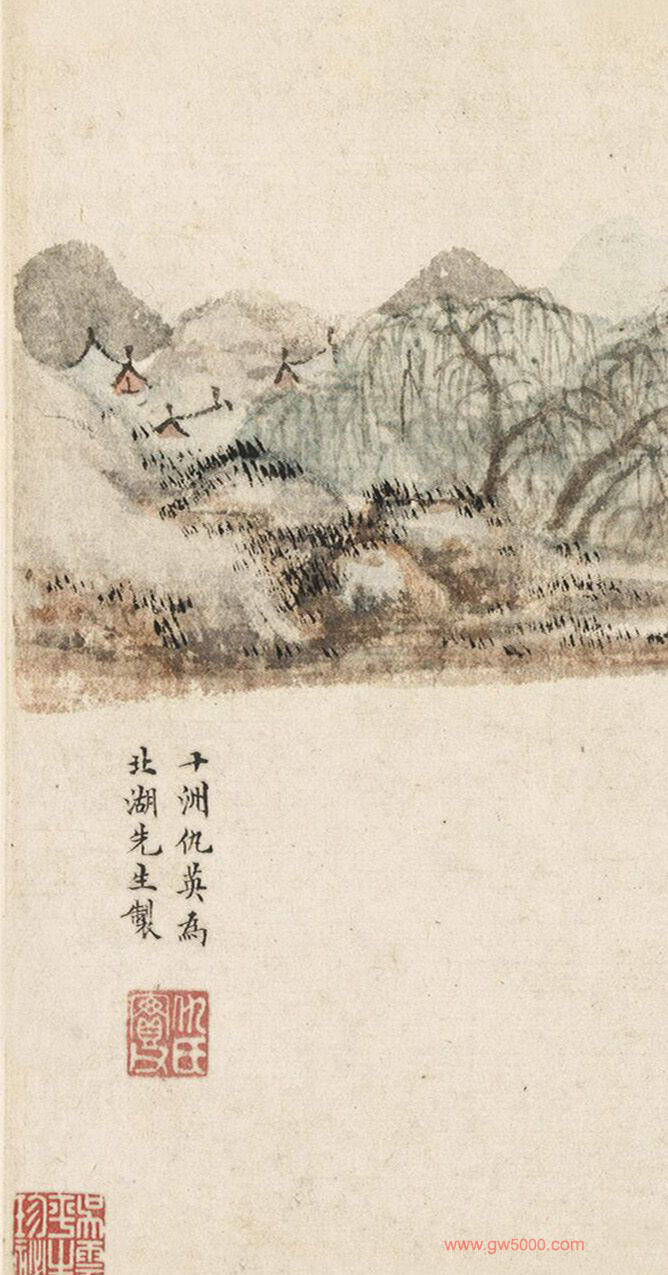 十洲仇英為
北湖先生製
仇氏實父
www.gw5000.com